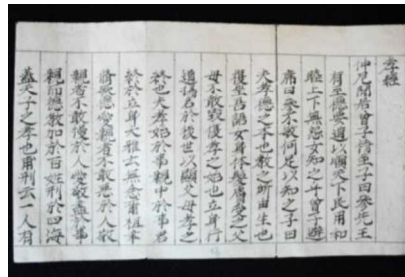 孝經
仲尼閒居曾子侍坐子曰參先王
有至德要道以順天下民用和
睦上下無怨女知之乎曾子避
席曰參不敏何足以知之子曰
夫孝德之本也教之所由生也
復坐吾語女身體髮膚受之父
母不敢毀傷孝之始也立身行
道揚名於後世以顯父母孝之
終也夫孝始於事親中於事君
終於立身大雅云無念爾祖聿
脩厥德愛親者不敢惡於人敬
親者不敢慢於人愛敬盡於事
親而德教加於百姓刑於四海
蓋天子之孝也甫刑云一人有